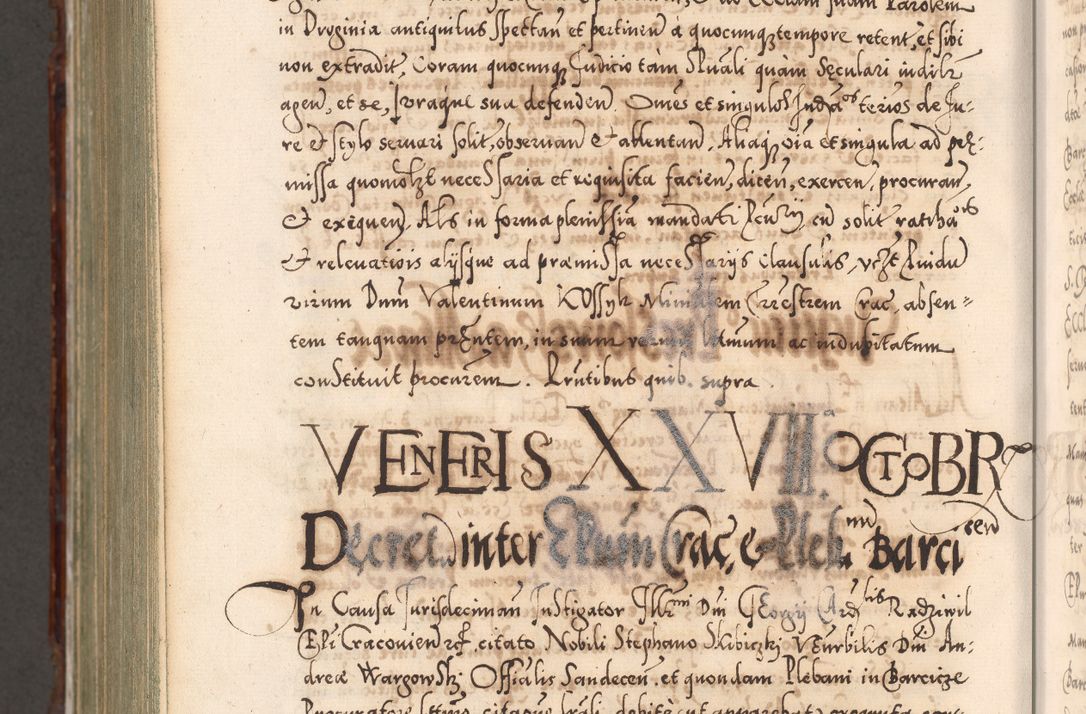 in Droginia antiquitus spectan et pertinen à quocunq; tempore retent, et sibi
non extradit, Coram quocunq; Judicio tàm Spuali quàm Seculari indilr
agen, et se, Juraque sua defenden. Omes et singulos Juris terios de Ju-
re et stylo servari solit, observan et attentan, Aliaq; oia et singula ad pre-
missa quomolzt necessaria et requisita facien, dicen, exercen, procuran,
et exequen, Als in forma plenissia mandati cu solit rathaois
et relevatiois alijsque ad præmissa necessarijs clausulis, vczt Puidu
virum Dnm Valentinum Kossyk Crac, absen-
tem tanquam prentem, in suum verum ltimum ac indubitatum
constituit procurem. Prntibus quib. supra
VENERIS XXVIIIa OCTOBR
Decret. inter Epum Crac, & Pleb. Barci
In Causa Jurisdeciman Instigator Illrmi Dni Georgij Cardlis Radziwil
Epi Cracovien citato Nobili Stephano Skibiczki Venrbilis Dni An-
dreæ Wargowski Officialis Sandecen. et quondam Plebani in Barcicze